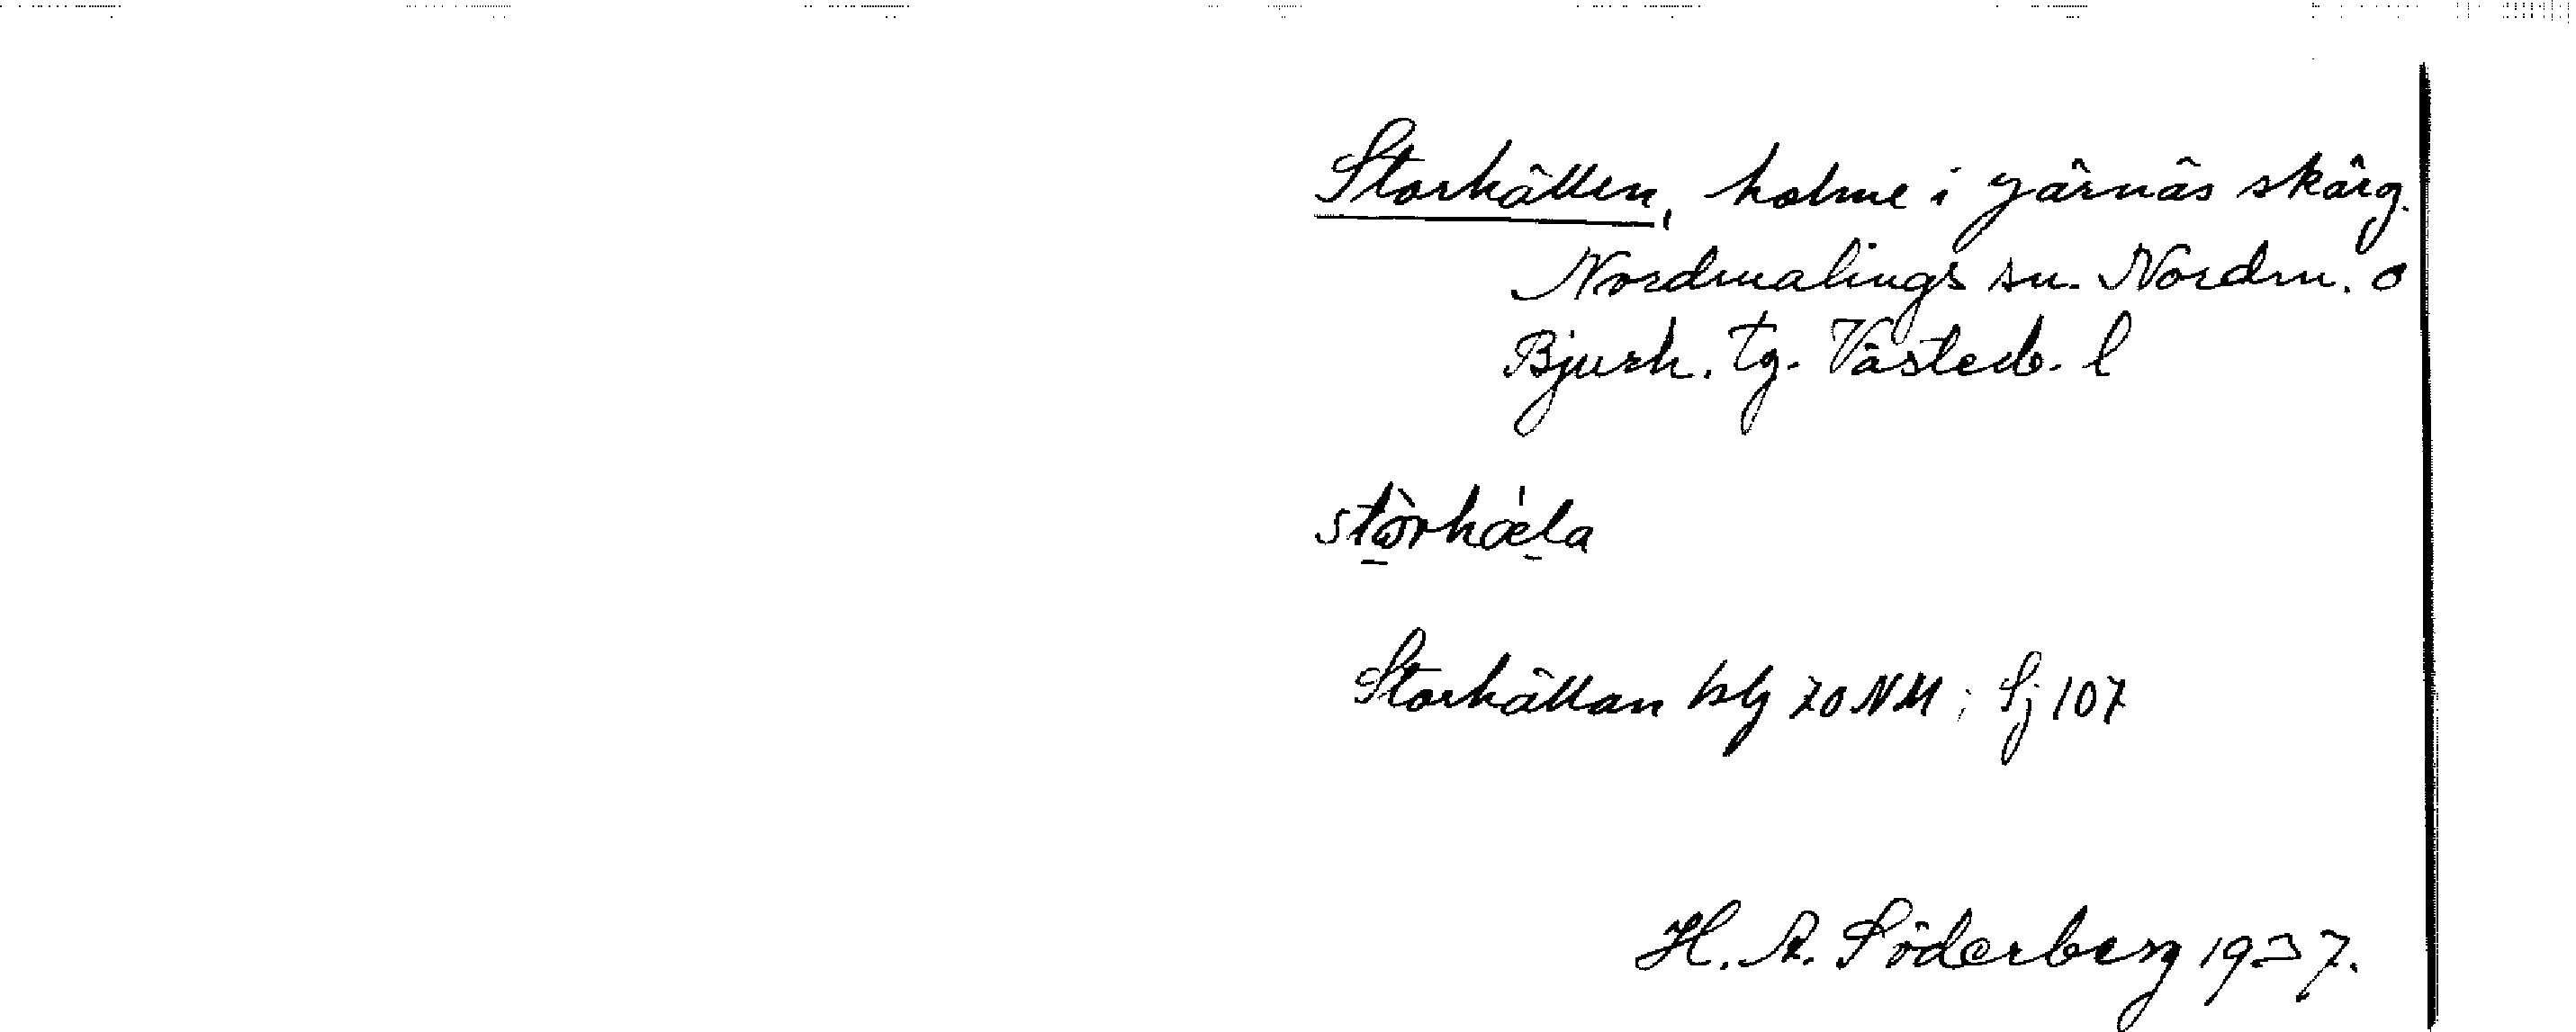 Storhällen, holme i Järnäs skärg.
Nordmalings sn. Nordm. o
Bjurh. tg. Västerb. l
Storhällan blg 70 NM; Sj 107
H. A. Söderberg 1937.